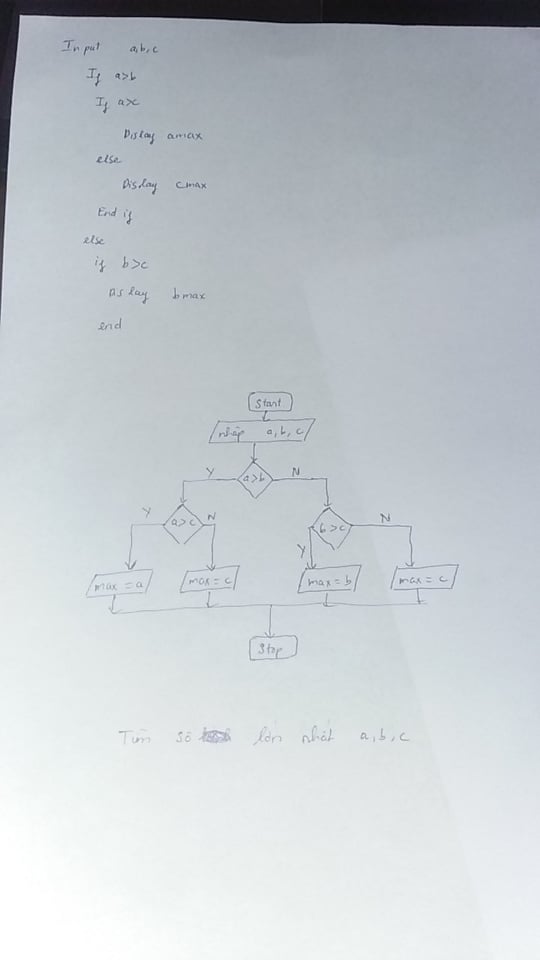 Input a,b,c
If a>b
If a>c
Dislay amax
else
Dislay cmax
End if
else
if b>c
Dislay bmax
end
Start
nhập a,b,c
a>b
Y N
a>c
Y N
b>c
Y N
max = a
max = c
max = b
max = c
Stop
Tìm số lớn nhất a,b,c